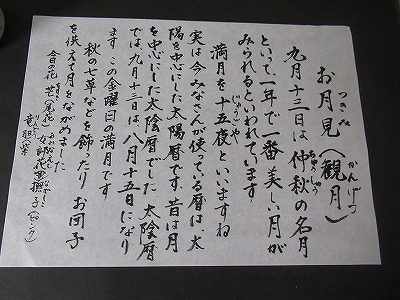 お月見(観月)
つきみ
かんげつ
九月十三日は仲秋の名月
ちゅうしゅう
といって、一年で一番美しい月が
みられるといわれています
満月を十五夜といいますね
じゅうごや
実は今みなさんが使っている暦は、太
陽を中心にした太陽暦です。昔は月
を中心にした太陰暦でした 太陰暦
では、九月十三日は、八月十五日になり
ます この金曜日の満月です
秋の七草などを飾ったり お団子
を供えて月をながめました
今日の花 芒(尾花)
女郎花 撫子(ピンク)
おみなえし
なでしこ
竜胆
りんどう